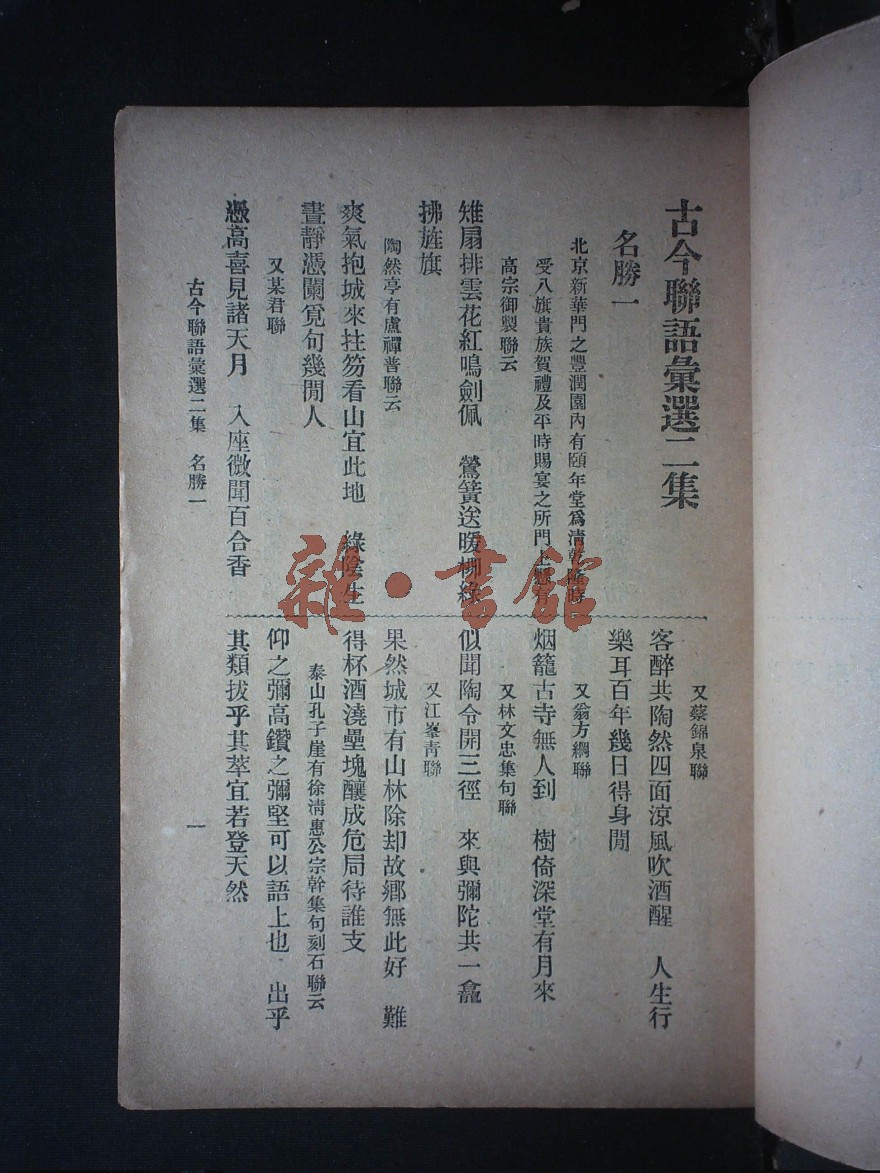 古今聯語彙選二集
名勝一
北京新華門之豐潤園內有頤年堂爲清乾隆時
受八旗貴族賀禮及平時賜宴之所門上懸有
高宗御製聯云
雉扇排雲花紅鳴劍佩　鶯簧送暖柳綠
拂旌旗
陶然亭有盧禪普聯云
爽氣抱城來拄笏看山宜此地　綠陰生
晝靜憑闌覓句幾閒人
又某君聯
憑高喜見諸天月　入座微聞百合香
又蔡錦泉聯
客醉共陶然四面涼風吹酒醒　人生行
樂耳百年幾日得身閒
又翁方綱聯
烟籠古寺無人到　樹倚深堂有月來
又林文忠集句聯
似聞陶令開三徑　來與彌陀共一龕
又江峯青聯
果然城市有山林除却故鄉無此好　難
得杯酒澆壘塊釀成危局待誰支
泰山孔子崖有徐清惠公宗幹集句刻石聯云
仰之彌高鑽之彌堅可以語上也　出乎
其類拔乎其萃宜若登天然
古今聯語彙選二集　名勝一
一
雜·書館